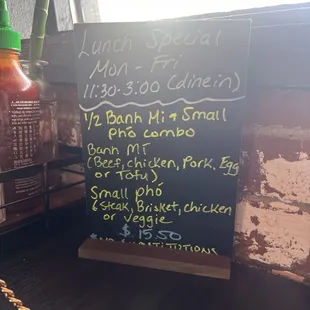 Lunch Special
Mon - Fri
11:30-3:00 (dinein)
1/2 Banh Mi & Small
phở combo
Banh MI
(Beef, chicken, Pork, Egg
or Tofu)
Small phở
steak, Brisket, chicken
or veggie
$ 15.50
*NO SUBSTITUTIONS